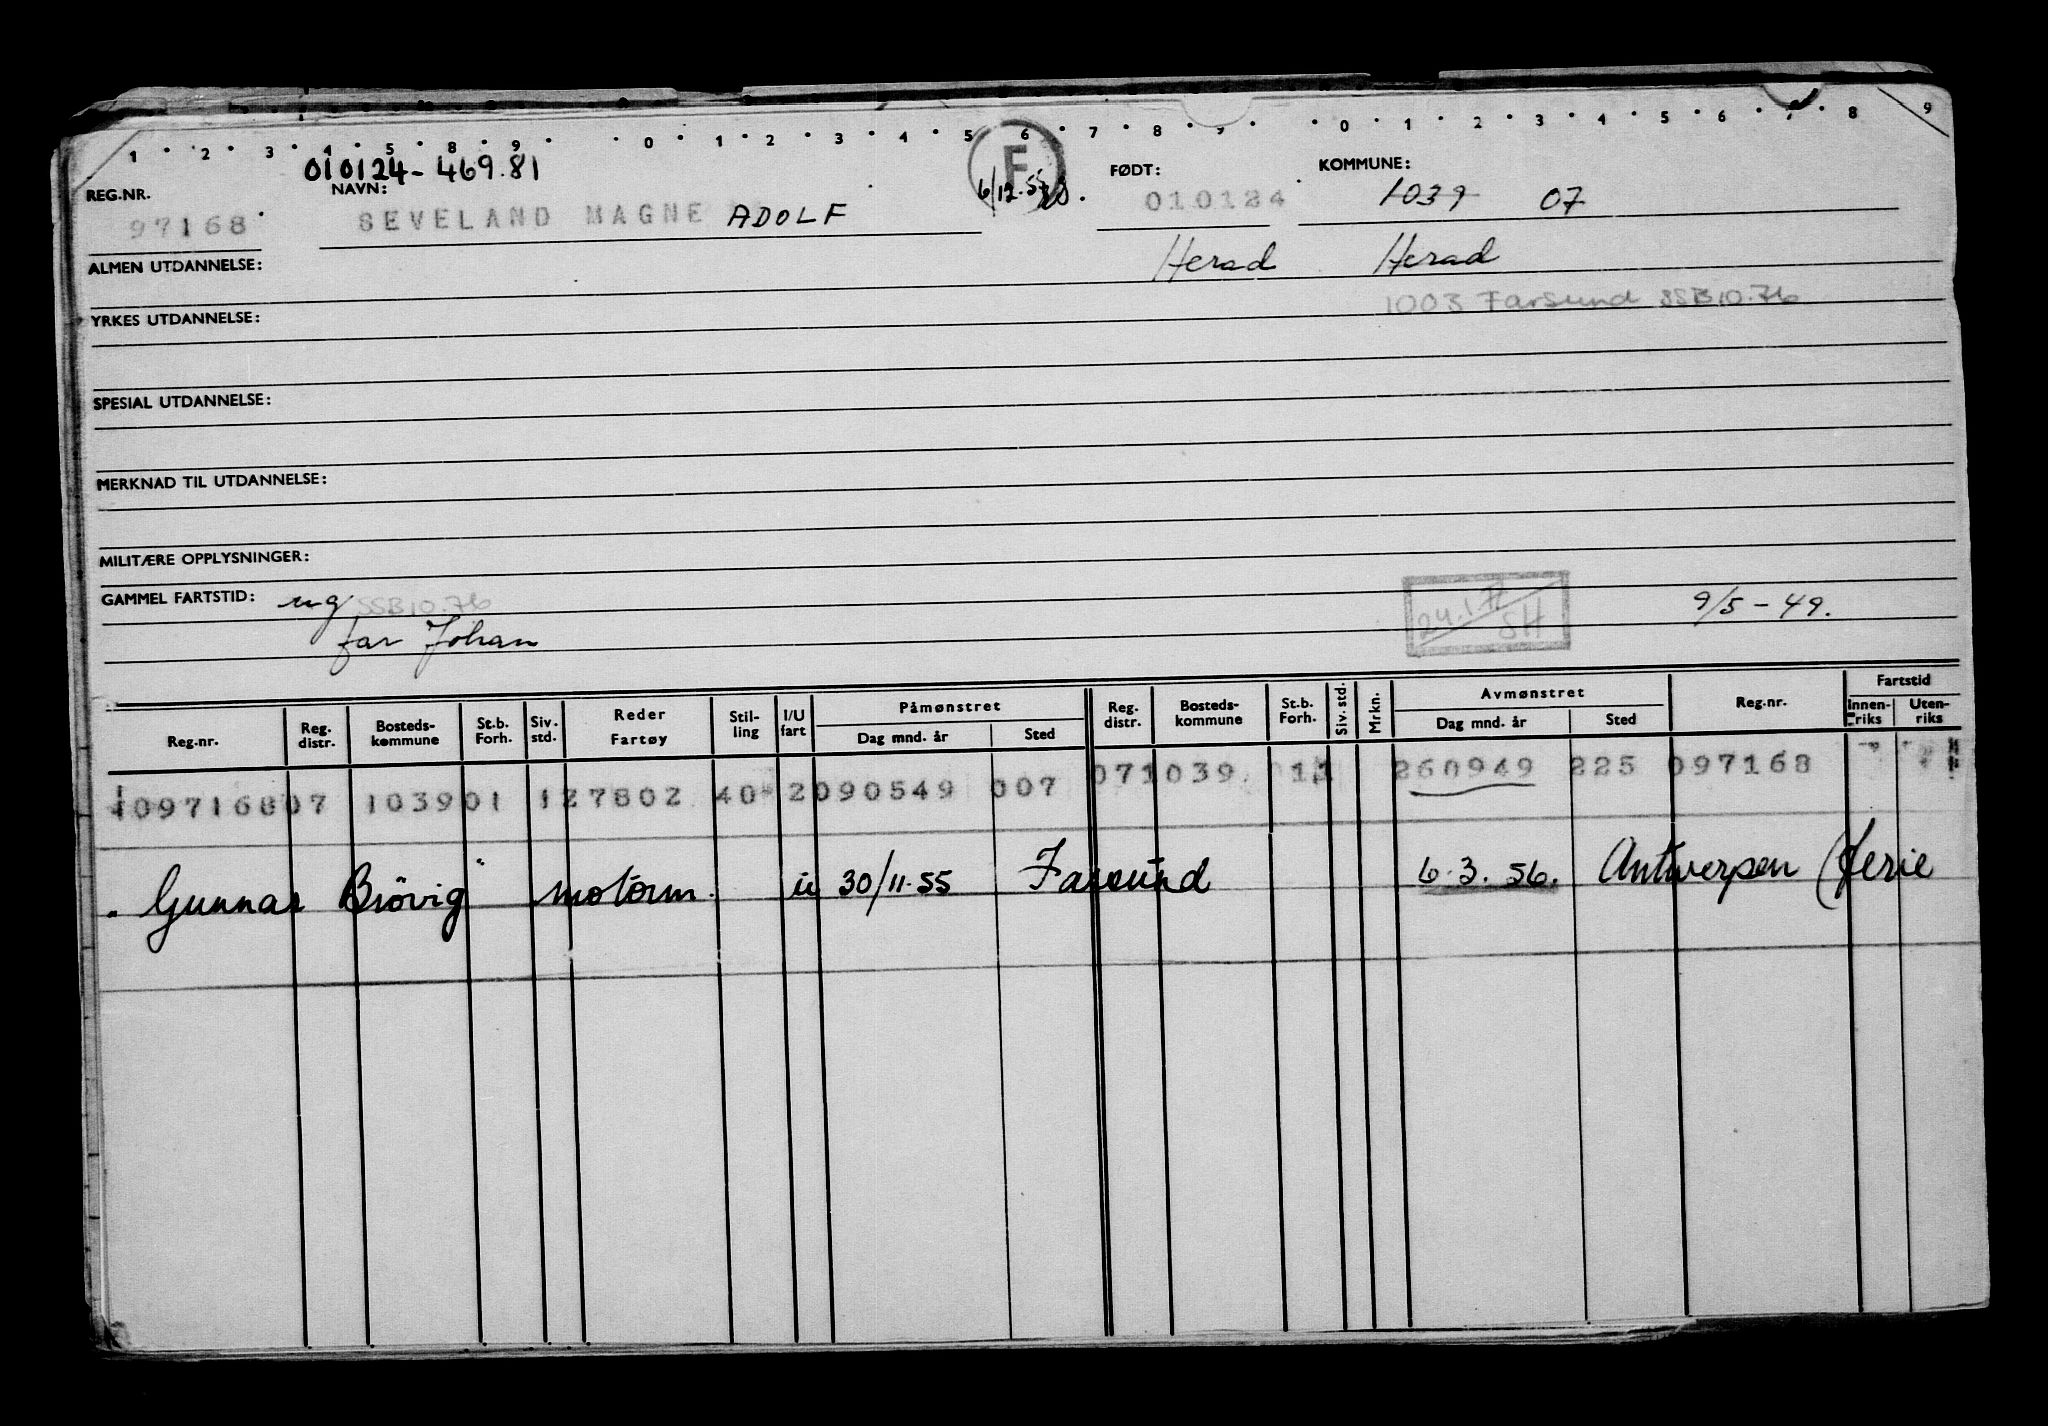 1 2 3 4 5 8 9 0 1 2 3 4 5 6 7 8 9 0 1 2 3 4 5 6 7 8 9
010124-469.81
REG.NR. NAVN: F FØDT: KOMMUNE:
97168 SEVELAND MAGNE ADOLF 6/12.55 010124 1039 07
ALMEN UTDANNELSE: Herad Herad
1003 Farsund SSB 10.76
YRKES UTDANNELSE:
SPESIAL UTDANNELSE:
MERKNAD TIL UTDANNELSE:
MILITÆRE OPPLYSNINGER:
GAMMEL FARTSTID: ug SSB 10.76 SH 9/5-49.
far Johan
Reg.nr. Reg. distr. Bosteds-kommune St.b. Forh. Siv. std. Reder Fartøy Stil-ling I/U fart Påmønstret Dag mnd. år Sted Reg. distr. Bosteds-kommune St.b. Forh. Siv. std. Mrkn. Avmønstret Dag mnd. år Sted Reg.nr. Fartstid Innen-riks Uten-riks
109716807 103901 127802 40 2090549 007 071039 011 260949 225 097168
"Gunnar Brövig" motorm. u 30/11-55 Farsund 6.3.56. Antwerpen (ferie